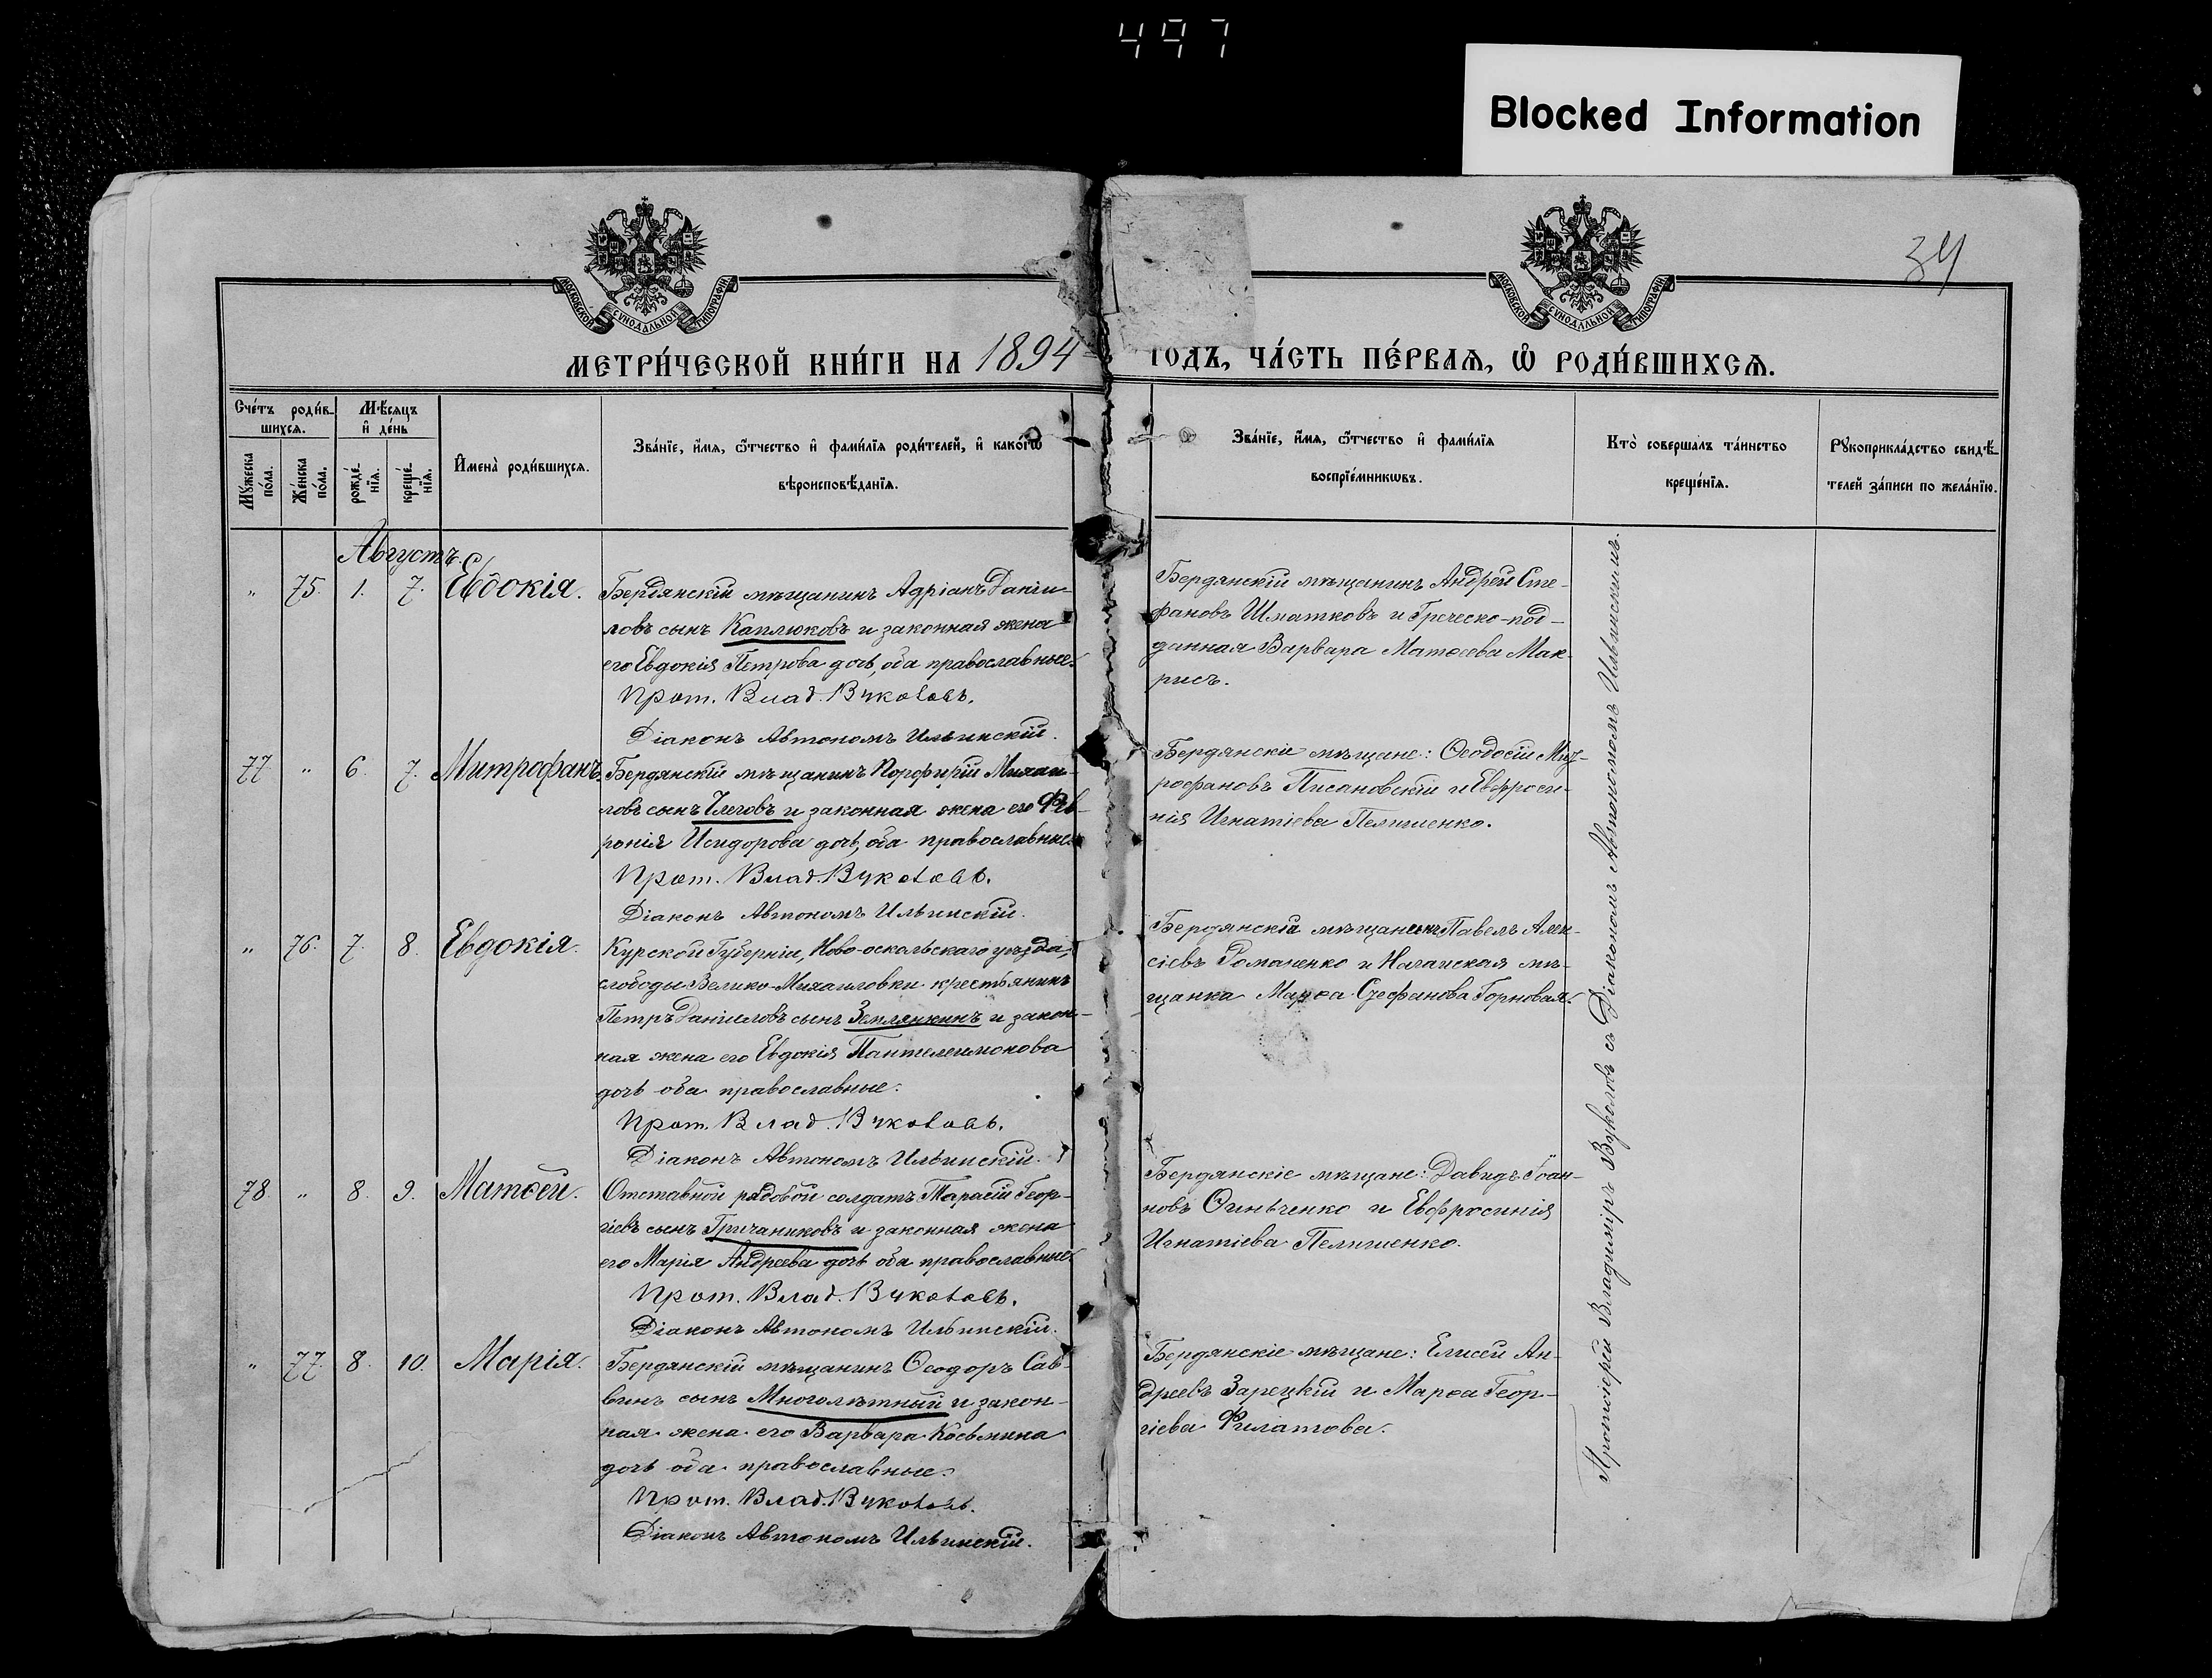 497
Blocked Information
34
МОСКОВСКОЙ СѴНОДАЛЬНОЙ ТИПОГРАФІИ
МОСКОВСКОЙ СѴНОДАЛЬНОЙ ТИПОГРАФІИ
МЕТРИ́ЧЕСКОЙ КНИ́ГИ НА 1894 ГОДЪ, ЧА́СТЬ ПЕ́РВАЯ, Ѡ҆ РОДИ́ВШИХСѦ.
Сче́тъ роди́в-
шихсѧ.
Мѣ́сяцъ
и҆ де́нь
Мꙋ́жеска по́ла.
Же́нска по́ла.
рожде́-нїѧ.
креще́-нїѧ.
И҆мена̀ роди́вшихсѧ.
Зва́нїе, и҆́мя, ѻ҆́тчество и҆ фами́лїѧ роди́телей, и҆ како́гѡ
вѣроисповѣ́данїѧ.
Зва́нїе, и҆́мя, ѻ҆́тчество и҆ фами́лїѧ
воспрїе́мникѡвъ.
Кто̀ соверша́лъ та́инство
креще́нїѧ.
Рꙋкоприкла́дство свидѣ́-
телей за́писи по жела́нїю.
Августъ.
" 75. 1. 7. Евдокія.
Бердянскій мѣщанинъ Адріанъ Дании-
ловъ сынъ Каплюковъ и законная жена
его Евдокія Петрова дочь, оба православные.
Прот. Влад. Вуколовъ.
Діаконъ Автономъ Ильинскій.
Бердянскій мѣщанинъ Андрей Сте-
фановъ Шматковъ и Греческо-под-
данная Варвара Матѳеева Мак-
рисъ.
77. " 6. 7. Митрофанъ.
Бердянскій мѣщанинъ Порфирій Михаи-
ловъ сынъ и законная жена его Фев-
ронія Исидорова дочь, оба православные.
Прот. Влад. Вуколовъ.
Діаконъ Автономъ Ильинскій.
Бердянскіе мѣщане: Ѳеодосій Мит-
рофановъ Писановскій и Евфроси-
нія Игнатіева Пелишенко.
" 76. 7. 8. Евдокія.
Курской Губерніи, Ново-оскольскаго уѣзда,
слободы Велико-Михаиловки крестьянинъ
Петръ Даніиловъ сынъ Землянкинъ и закон-
ная жена его Евдокія Пантелеимонова
дочь оба православные.
Прот. Влад. Вуколовъ.
Діаконъ Автономъ Ильинскій.
Бердянскій мѣщанинъ Павелъ Алек-
сіевъ Романенко и Ногайская мѣ-
щанка Марѳа Стефанова Горновая.
78. " 8. 9. Матѳей.
Отставной рядовой солдатъ Тарасій Геор-
гіевъ сынъ Гричаниковъ и законная жена
его Марія Андреева дочь оба православные.
Прот. Влад. Вуколовъ.
Діаконъ Автономъ Ильинскій.
Бердянскіе мѣщане: Давидъ Іоан-
новъ Ѳиньченко и Евфросинія
Игнатіева Пелишенко.
" 77. 8. 10. Марія.
Бердянскій мѣщанинъ Ѳеодоръ Сав-
винъ сынъ Многолѣтный и закон-
ная жена его Варвара Косьмина
дочь оба православные.
Прот. Влад. Вуколовъ.
Діаконъ Автономъ Ильинскій.
Бердянскіе мѣщане: Елисей Ан-
дреевъ Зарецкій и Марѳа Геор-
гіева Филатова.
Протоіерей Владиміръ Вуколовъ съ Діакономъ Автономомъ Ильинскимъ.